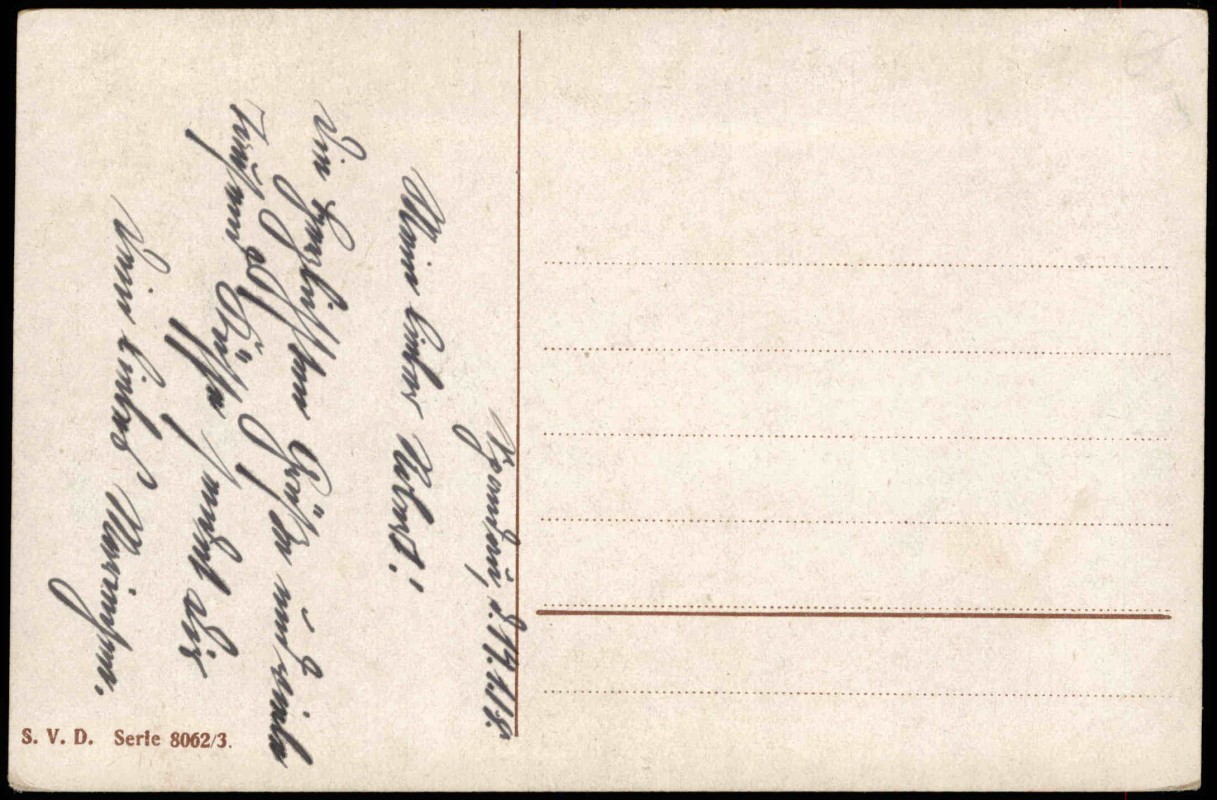 Spandau, d. 17.1.18.
Mein lieber
Die herzlichsten Grüße und viele
Tausend Küsse sendet dir
Dein liebes Mariechen.
S. V. D. Serie 8062/3.